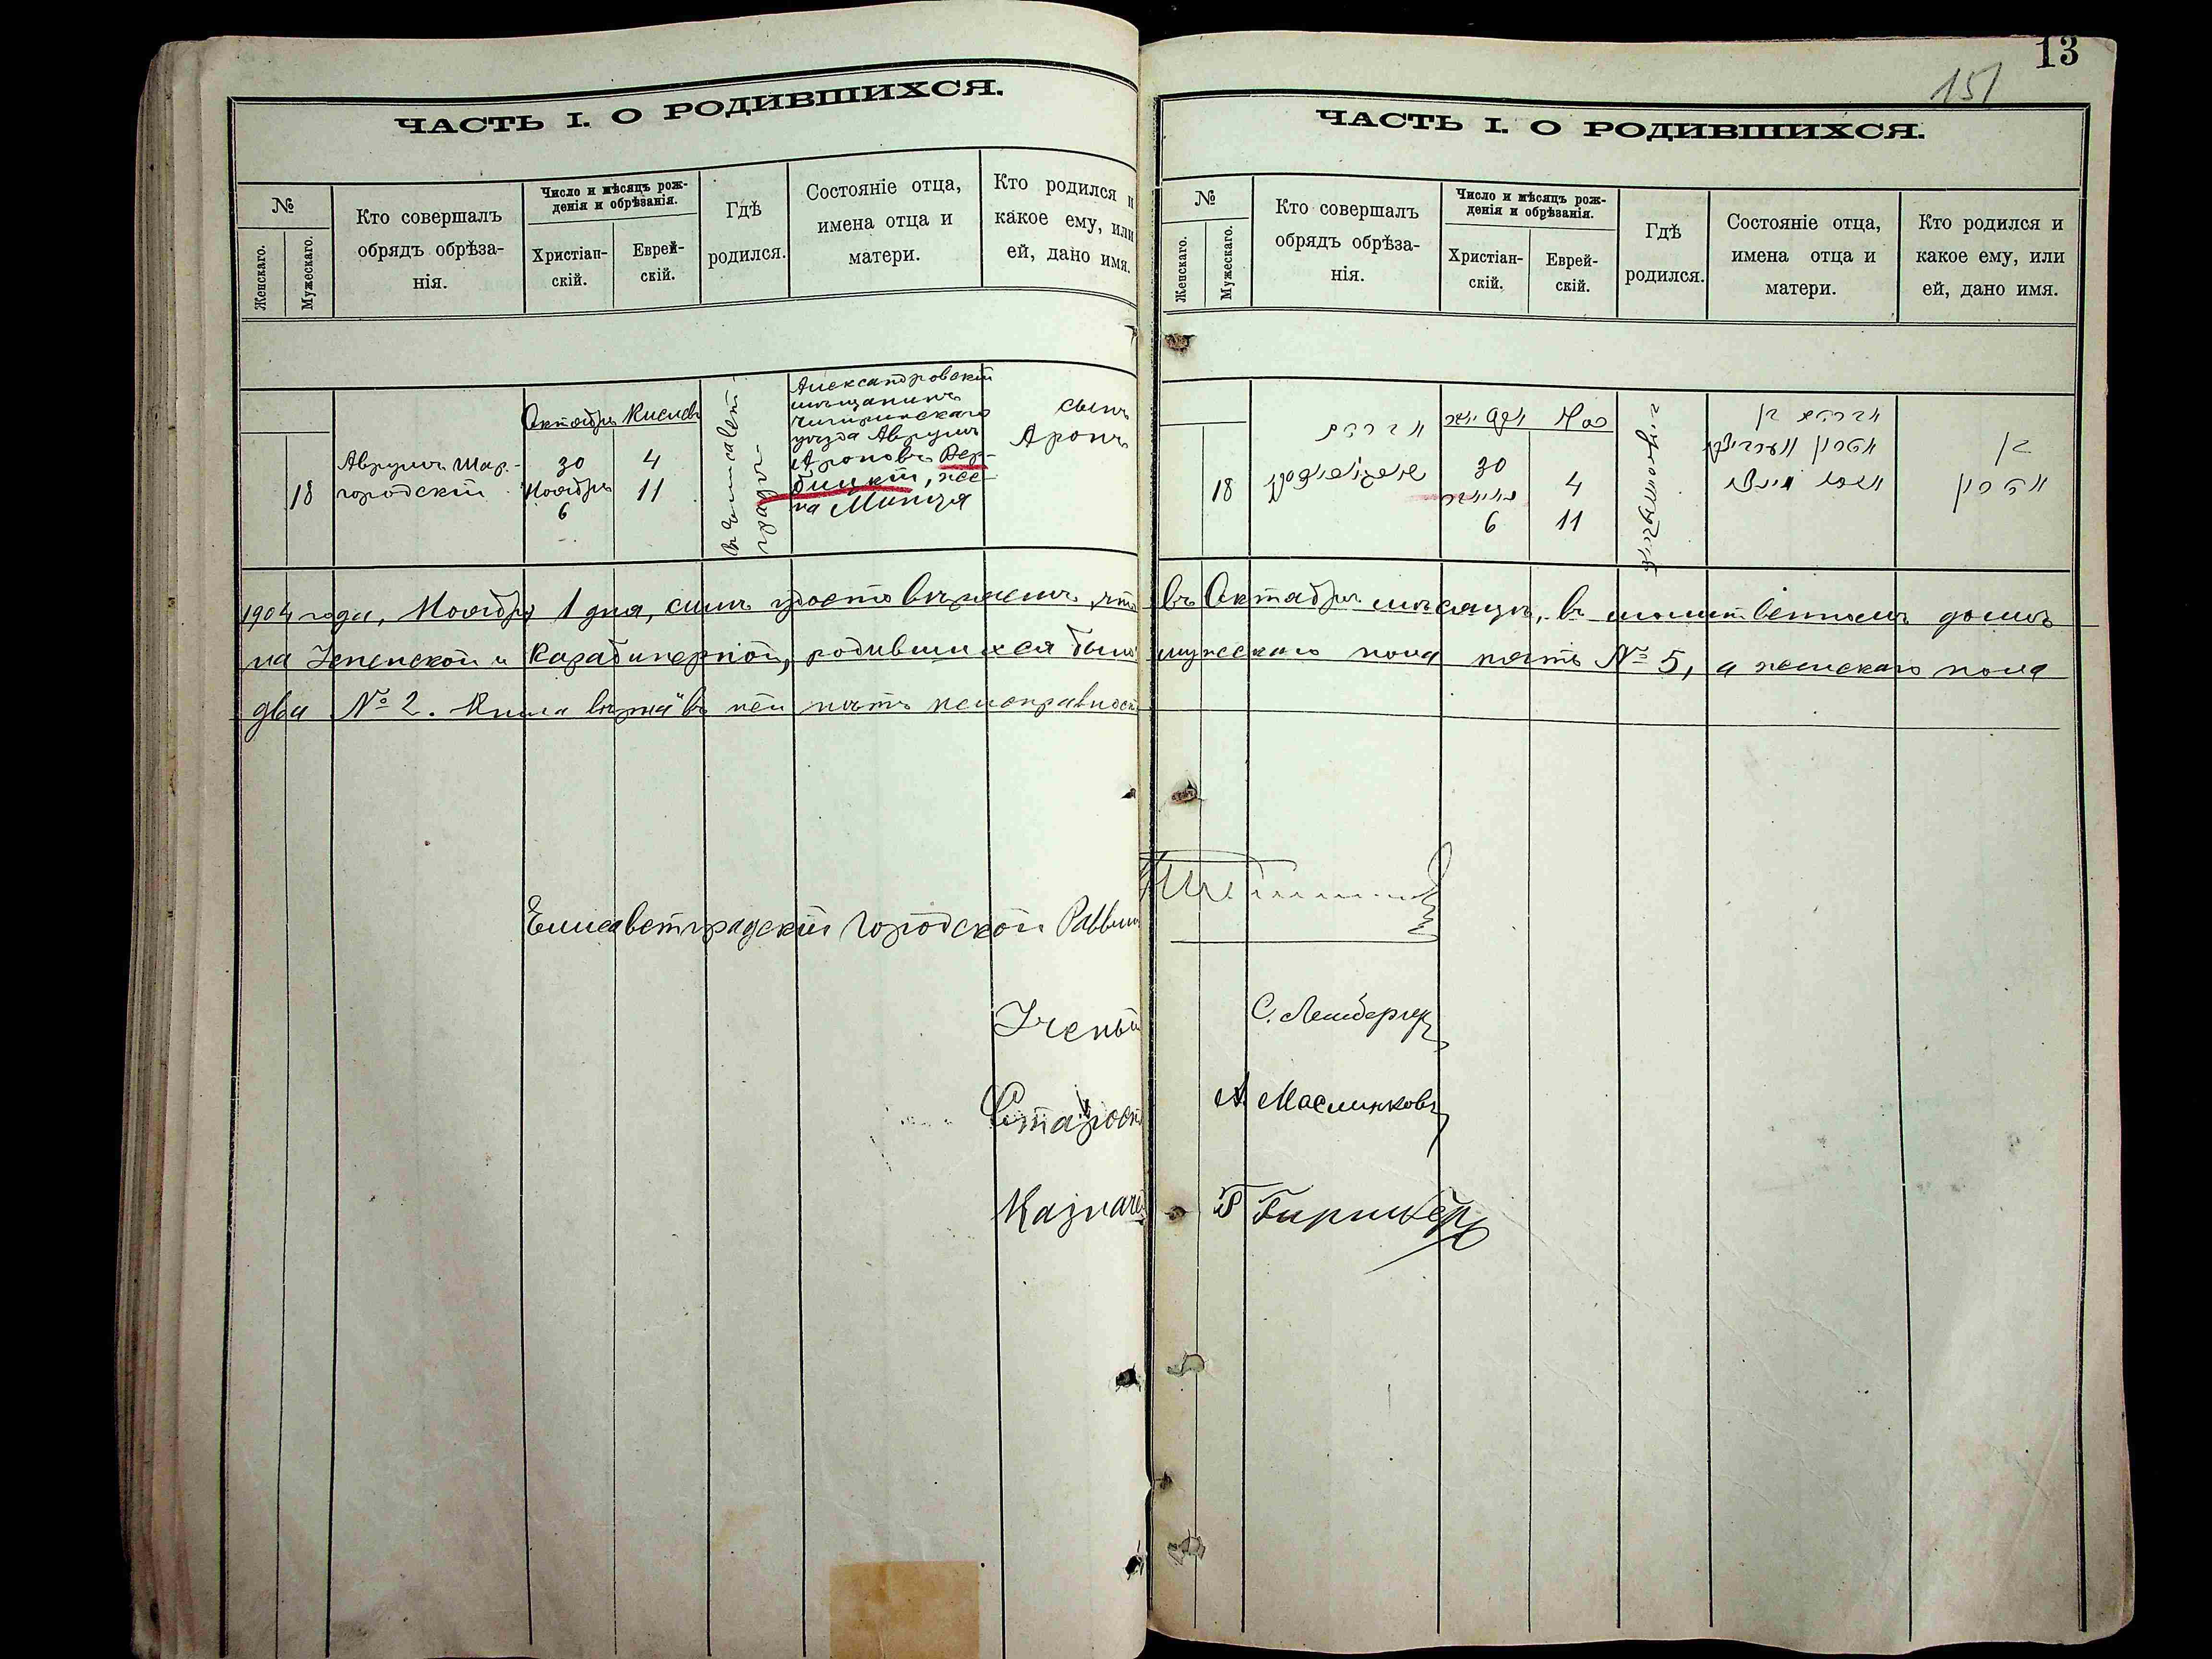 13
151
ЧАСТЬ I. О РОДИВШИХСЯ.
№
Женскаго.
Мужескаго.
Кто совершалъ
обрядъ обрѣза-
нія.
Число и мѣсяцъ рож-
денія и обрѣзанія.
Христіан-
скій.
Еврей-
скій.
Гдѣ
родился.
Состояніе отца,
имена отца и
матери.
Кто родился и
какое ему, или
ей, дано имя.
18
Аврумъ Шар-
городскій
Октябрь
30
Ноябрь
6
Кислевъ
4
11
въ Елисавет-
градѣ
Александровскій
мѣщанинъ
Чигиринскаго
уѣзда Аврумъ
Ароновъ Вер-
бицкій, же-
на Минця
сынъ
Аронъ
ЧАСТЬ I. О РОДИВШИХСЯ.
№
Женскаго.
Мужескаго.
Кто совершалъ
обрядъ обрѣза-
нія.
Число и мѣсяцъ рож-
денія и обрѣзанія.
Христіан-
скій.
Еврей-
скій.
Гдѣ
родился.
Состояніе отца,
имена отца и
матери.
Кто родился и
какое ему, или
ей, дано имя.
18
אברהם
30
6
4
11
אברהם בן
אהרן
בן
אהרן
1904 года, Ноября 1 дня, симъ удостовѣряемъ, что въ Октябрѣ мѣсяцѣ, въ молитвенномъ домѣ
на Успенской и Карабинерной, родившихся было мужескаго пола пять № 5, а женскаго пола
два № 2. Книга вѣрна въ ней нѣтъ неисправност
Елисаветградскій Городской Раввинъ
Ученый С. Лемберг
Староста А. Маслинковъ
Казначей